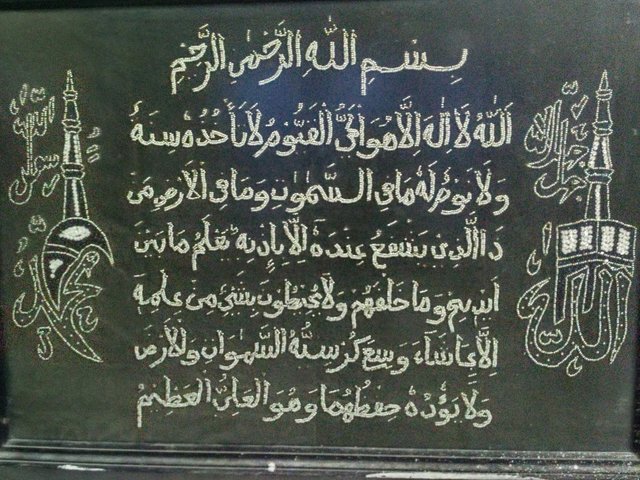 بِسْمِ اللّٰهِ الرَّحْمٰنِ الرَّحِيْمِ
اَللّٰهُ لَا اِلٰهَ اِلَّا هُوَ الْحَيُّ الْقَيُّوْمُ لَا تَأْخُذُهٗ سِنَةٌ
وَلَا نَوْمٌ لَهٗ مَا فِى السَّمٰوٰتِ وَمَا فِى الْاَرْضِ مَنْ
ذَا الَّذِىْ يَشْفَعُ عِنْدَهٗ اِلَّا بِاِذْنِهٖ يَعْلَمُ مَا بَيْنَ
اَيْدِيْهِمْ وَمَا خَلْفَهُمْ وَلَا يُحِيْطُوْنَ بِشَىْءٍ مِنْ عِلْمِهٖ
اِلَّا بِمَا شَاءَ وَسِعَ كُرْسِيُّهُ السَّمٰوٰتِ وَالْاَرْضَ
وَلَا يَؤُدُهٗ حِفْظُهُمَا وَهُوَ الْعَلِىُّ الْعَظِيْمُ
جل جلاله
الله
رسول الله
محمد